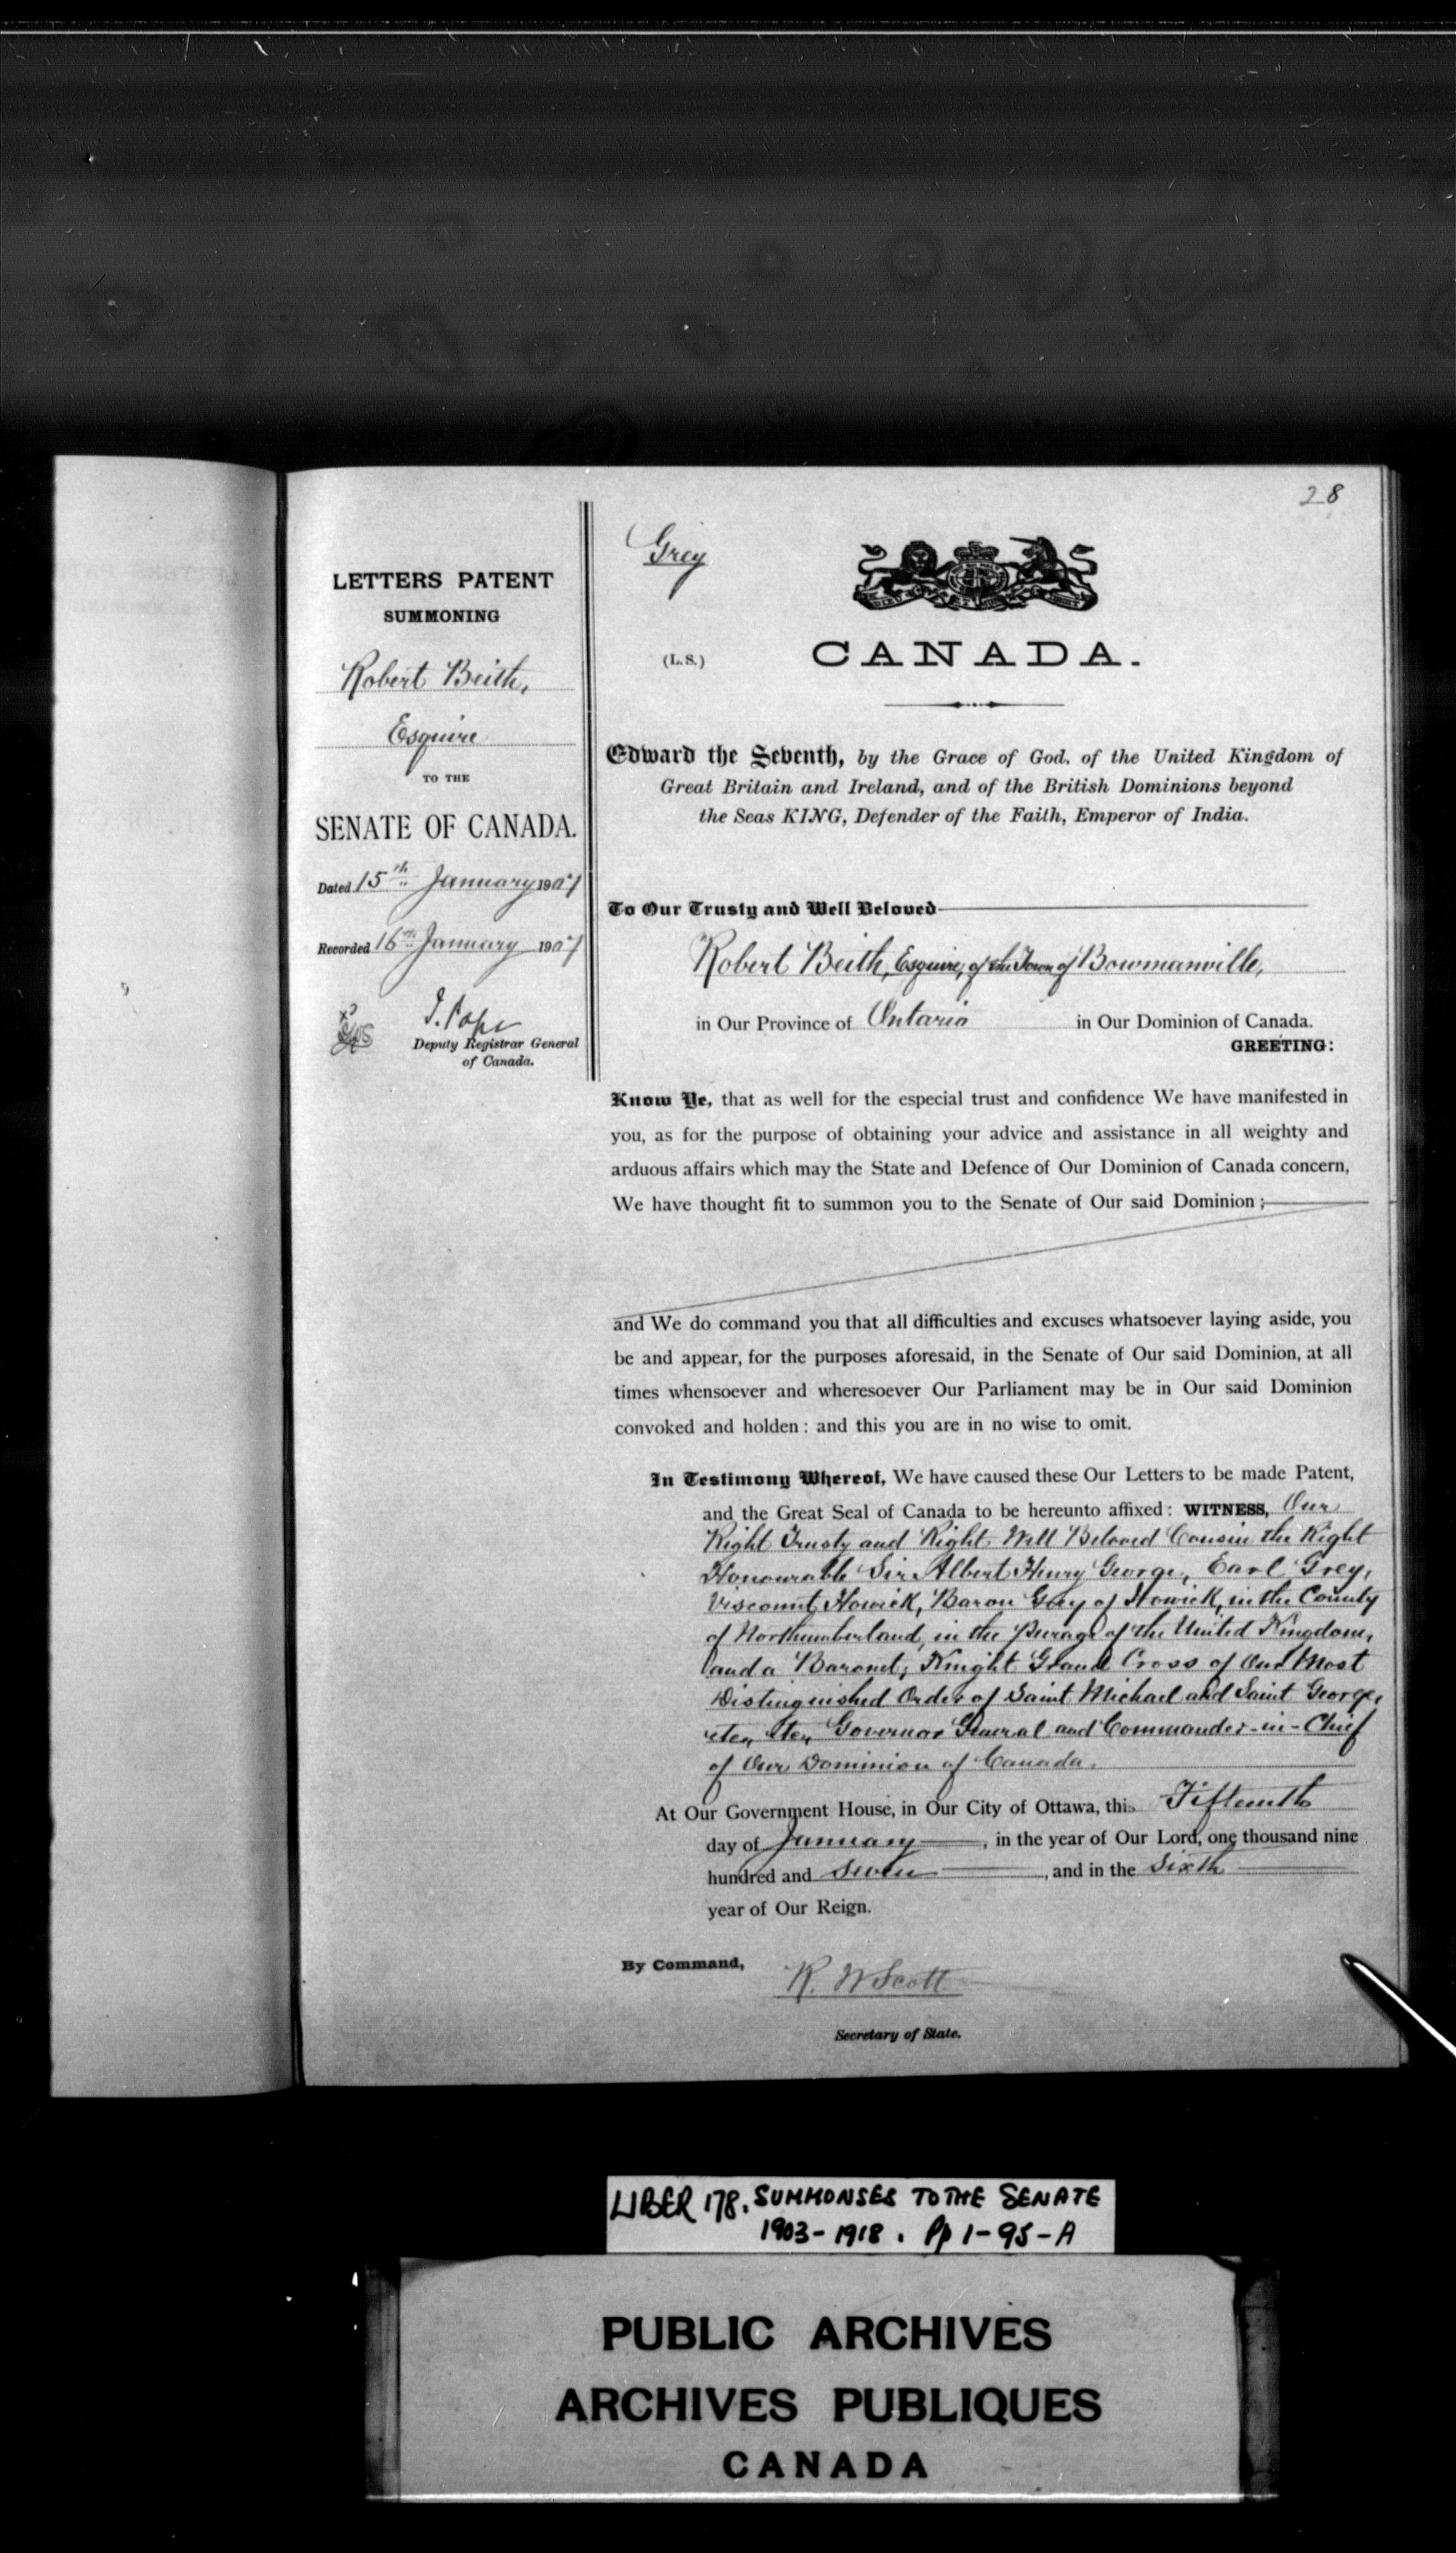 28
LETTERS PATENT
SUMMONING
Robert Beith,
Esquire
TO THE
SENATE OF CANADA.
Dated 15th January 1907
Recorded 16th January 1907
J. Pope
Deputy Registrar General
of Canada.
Grey
(L.S.)
CANADA.
Edward the Seventh, by the Grace of God, of the United Kingdom of
Great Britain and Ireland, and of the British Dominions beyond
the Seas KING, Defender of the Faith, Emperor of India.
To Our Trusty and Well Beloved
Robert Beith, Esquire, of the Town of Bowmanville,
in Our Province of Ontario in Our Dominion of Canada.
GREETING:
Know Ye, that as well for the especial trust and confidence We have manifested in
you, as for the purpose of obtaining your advice and assistance in all weighty and
arduous affairs which may the State and Defence of Our Dominion of Canada concern,
We have thought fit to summon you to the Senate of Our said Dominion;
and We do command you that all difficulties and excuses whatsoever laying aside, you
be and appear, for the purposes aforesaid, in the Senate of Our said Dominion, at all
times whensoever and wheresoever Our Parliament may be in Our said Dominion
convoked and holden: and this you are in no wise to omit.
In Testimony Whereof, We have caused these Our Letters to be made Patent,
and the Great Seal of Canada to be hereunto affixed: WITNESS, Our
Right Trusty and Right Well Beloved Cousin the Right
Honourable Sir Albert Henry George, Earl Grey,
Viscount Howick, Baron Grey of Howick, in the County
of Northumberland, in the Peerage of the United Kingdom,
and a Baronet; Knight Grand Cross of Our Most
Distinguished Order of Saint Michael and Saint George,
etc., etc., Governor General and Commander-in-Chief
of Our Dominion of Canada.
At Our Government House, in Our City of Ottawa, this Fifteenth
day of January, in the year of Our Lord, one thousand nine
hundred and Seven, and in the Sixth
year of Our Reign.
By Command,
R. W Scott
Secretary of State.
LIBER 178. SUMMONSES TO THE SENATE
1903-1918. Pp 1-95-A
PUBLIC ARCHIVES
ARCHIVES PUBLIQUES
CANADA